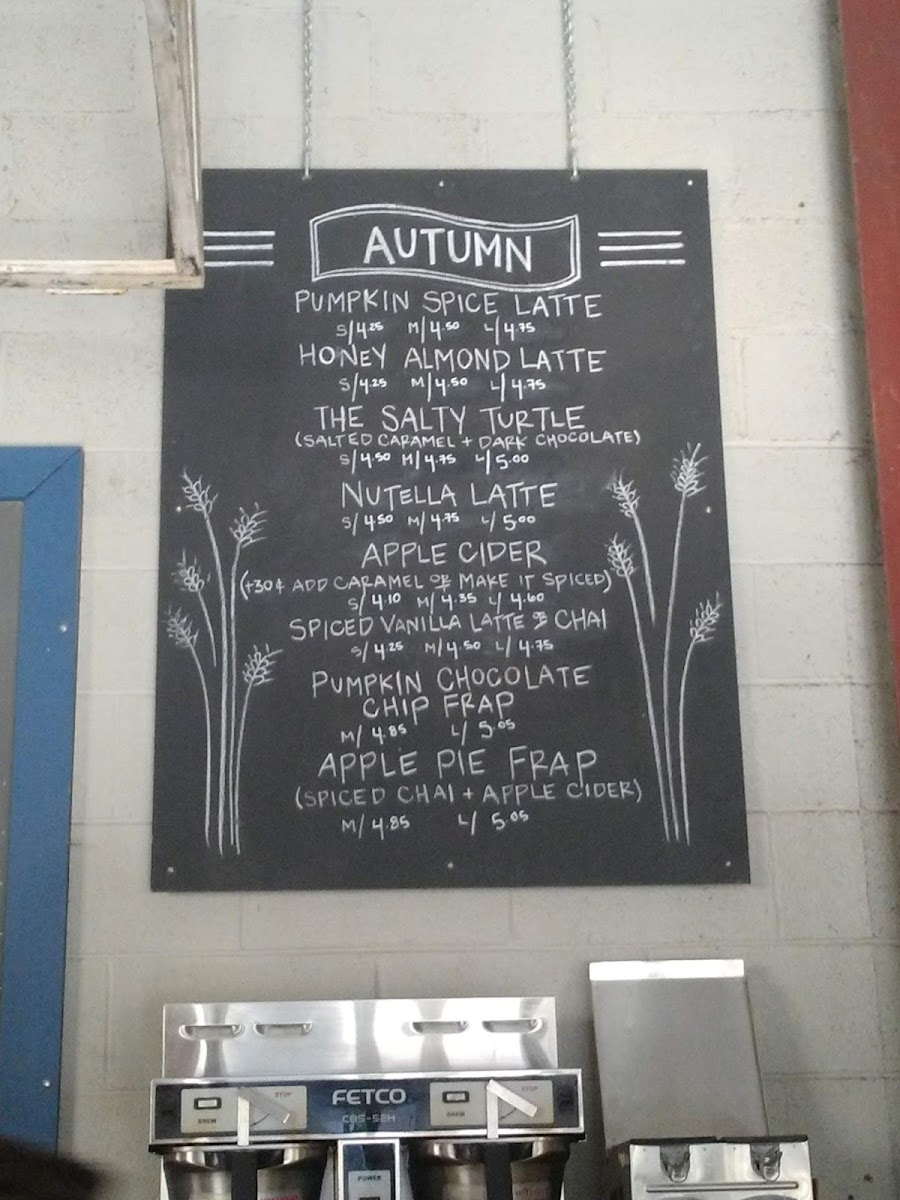 AUTUMN
PUMPKIN SPICE LATTE
S/4.25 M/4.50 L/4.75
HONEY ALMOND LATTE
S/4.25 M/4.50 L/4.75
THE SALTY TURTLE
(SALTED CARAMEL + DARK CHOCOLATE)
S/4.50 M/4.75 L/5.00
NUTELLA LATTE
S/4.50 M/4.75 L/5.00
APPLE CIDER
(+30¢ ADD CARAMEL OR MAKE IT SPICED)
S/4.10 M/4.35 L/4.60
SPICED VANILLA LATTE OR CHAI
S/4.25 M/4.50 L/4.75
PUMPKIN CHOCOLATE
CHIP FRAP
M/4.85 L/5.05
APPLE PIE FRAP
(SPICED CHAI + APPLE CIDER)
M/4.85 L/5.05
FETCO
CBS-52H
BREW STOP BREW STOP
POWER